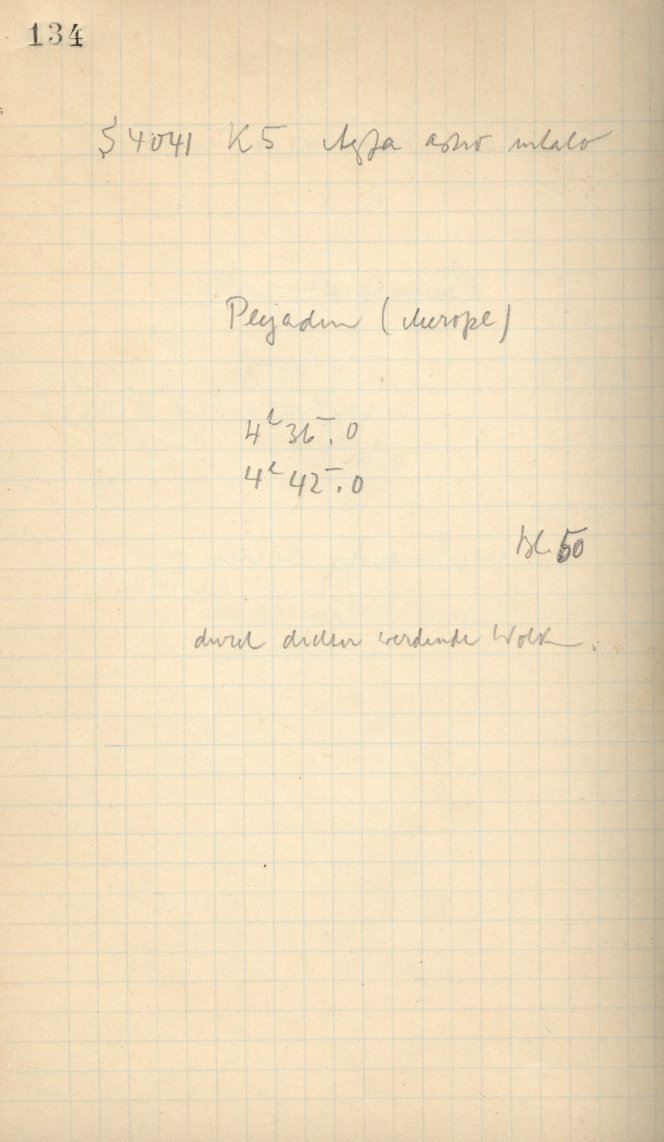 134
S 4041 K5 Agfa astro
Plejaden (Merope)
4h 36m.0
4h 42m.0
Bl. 50
durch dicker werdende Wolken.